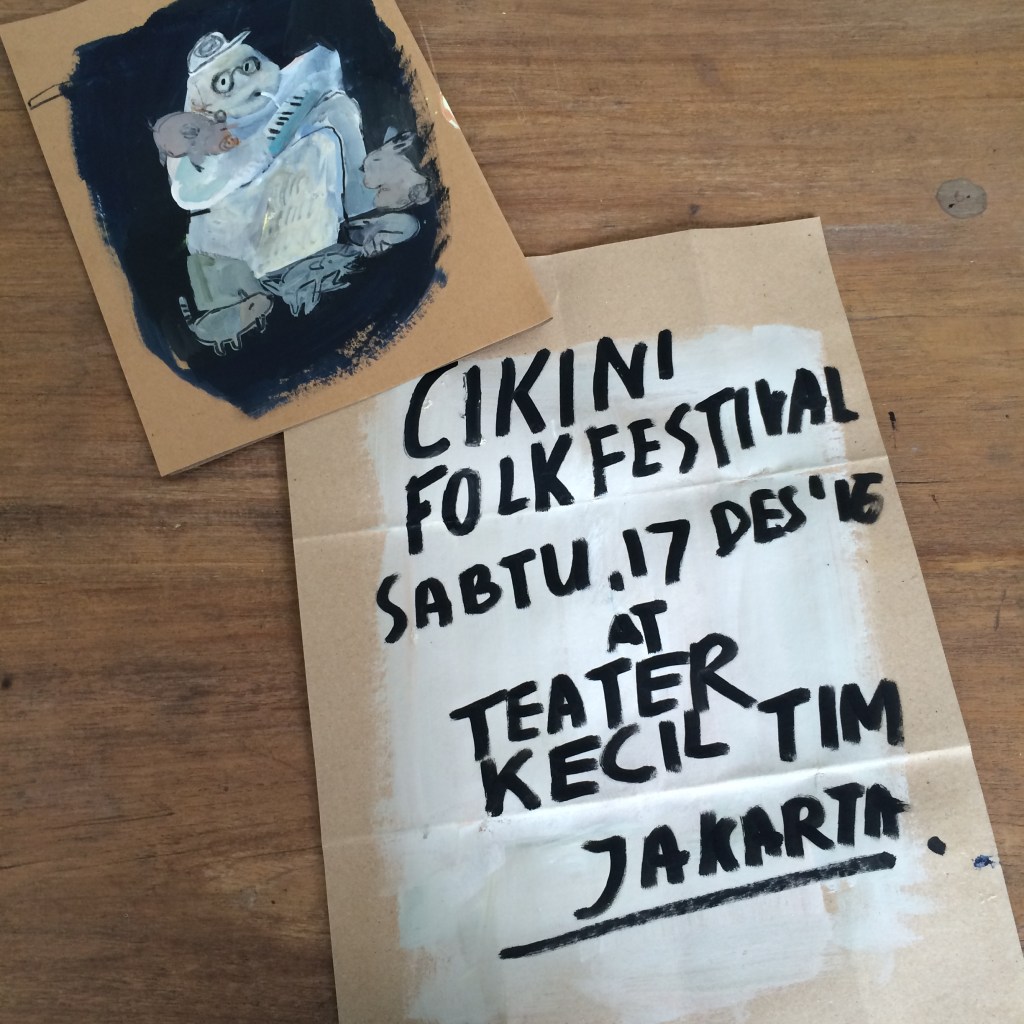 CIKINI
FOLK FESTIVAL
SABTU, 17 DES '16
AT
TEATER
KECIL TIM
JAKARTA.